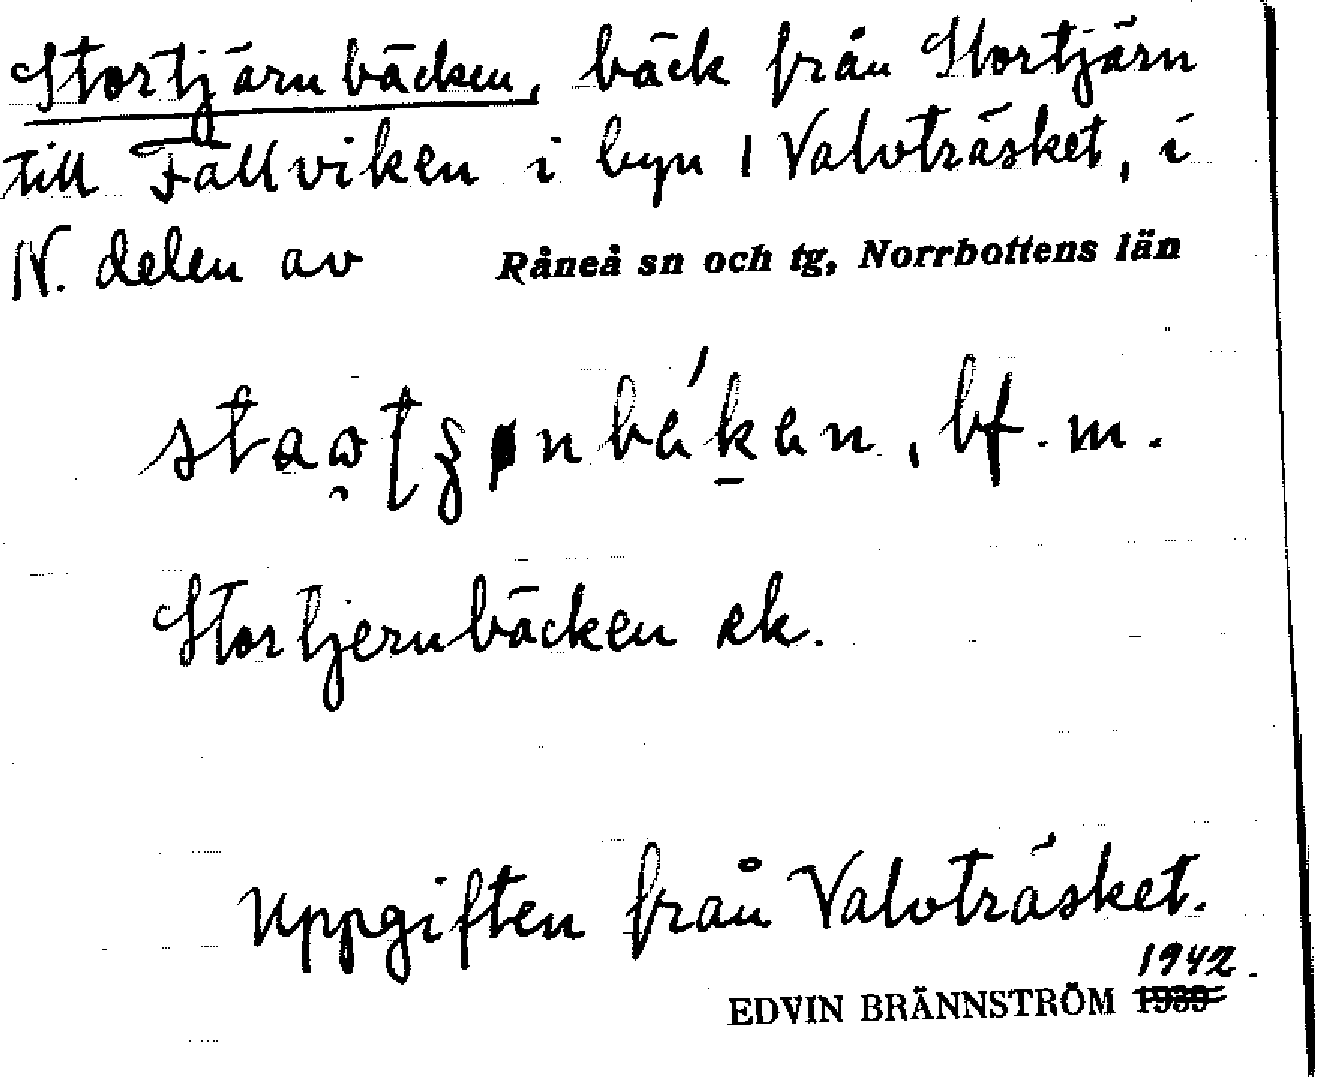 Stortjärnbäcken, bäck från Stortjärn
till Fällviken i byn Valvträsket, i
N. delen av Råneå sn och tg, Norrbottens län
bf. m.
Stortjernbäcken ek.
Uppgiften från Valvträsket.
1942.
EDVIN BRÄNNSTRÖM 1939